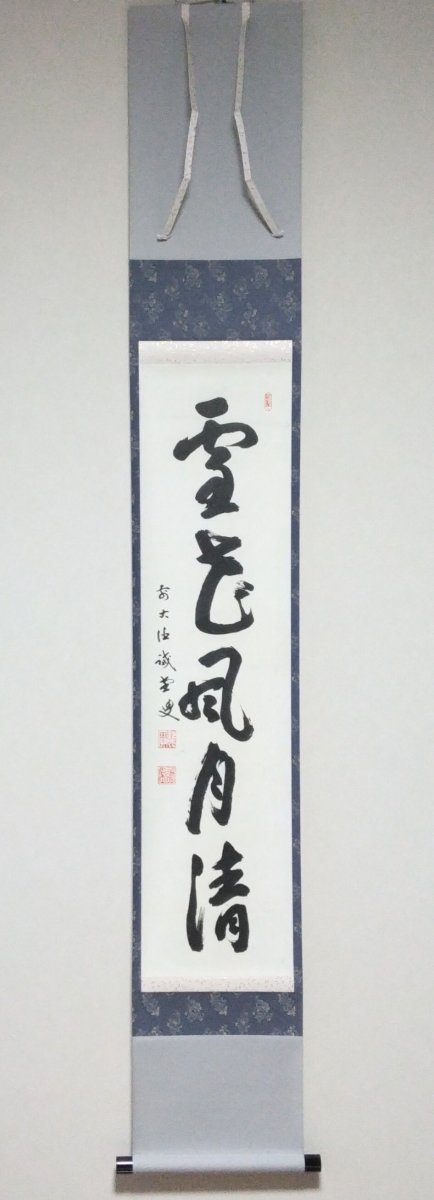 雪花風月清
前大徳誠堂叟